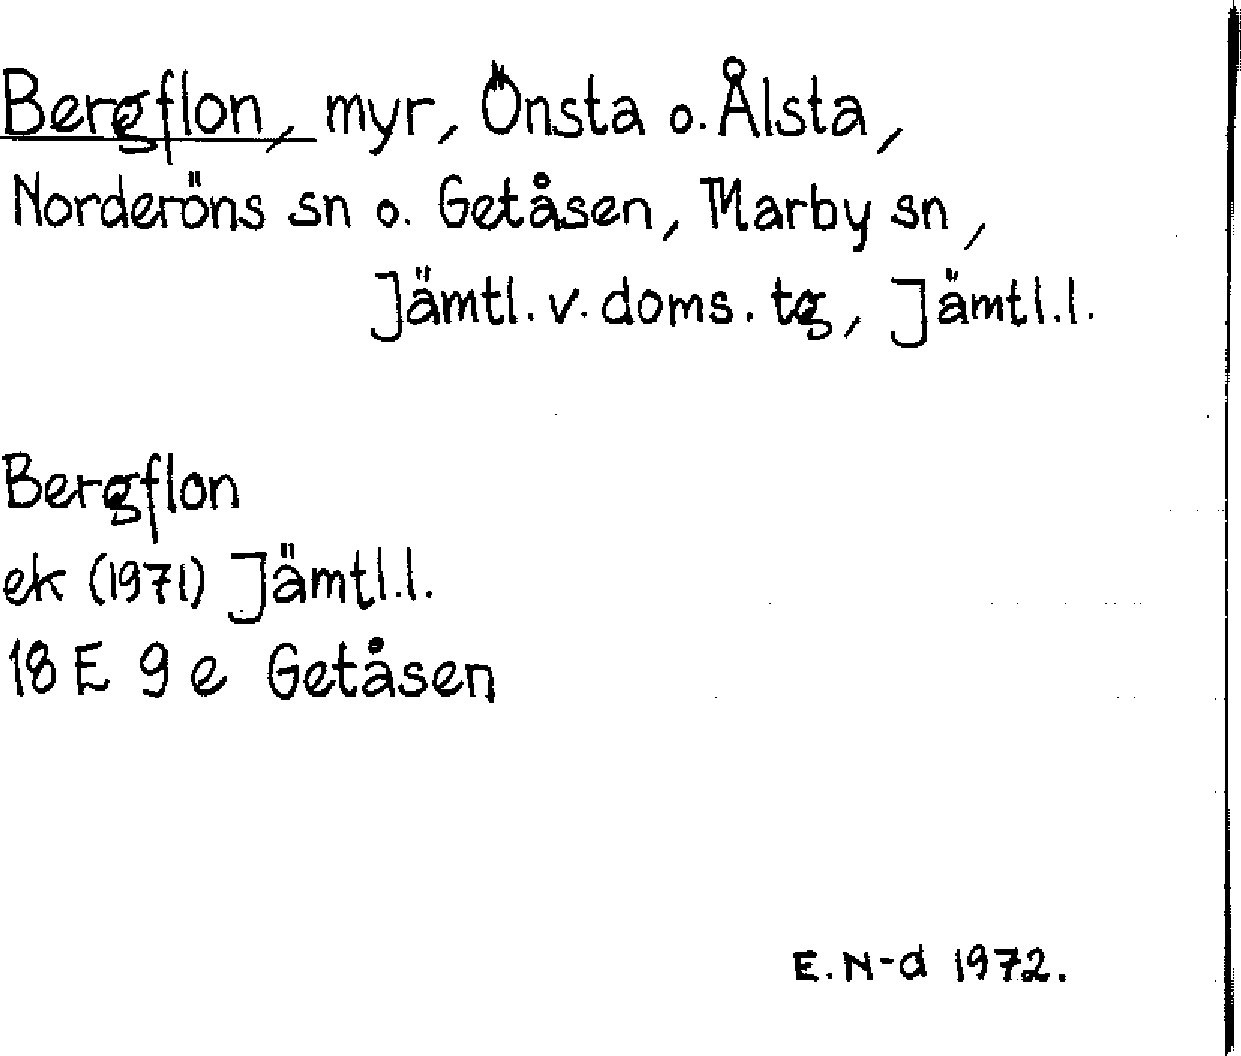 Bergflon, myr, Önsta o. Ålsta,
Norderöns sn o. Getåsen, Marby sn,
Jämtl. v. doms. tg, Jämtl.l.
Bergflon
ek (1971) Jämtl.l.
18 E 9 e Getåsen
E. N-d 1972.